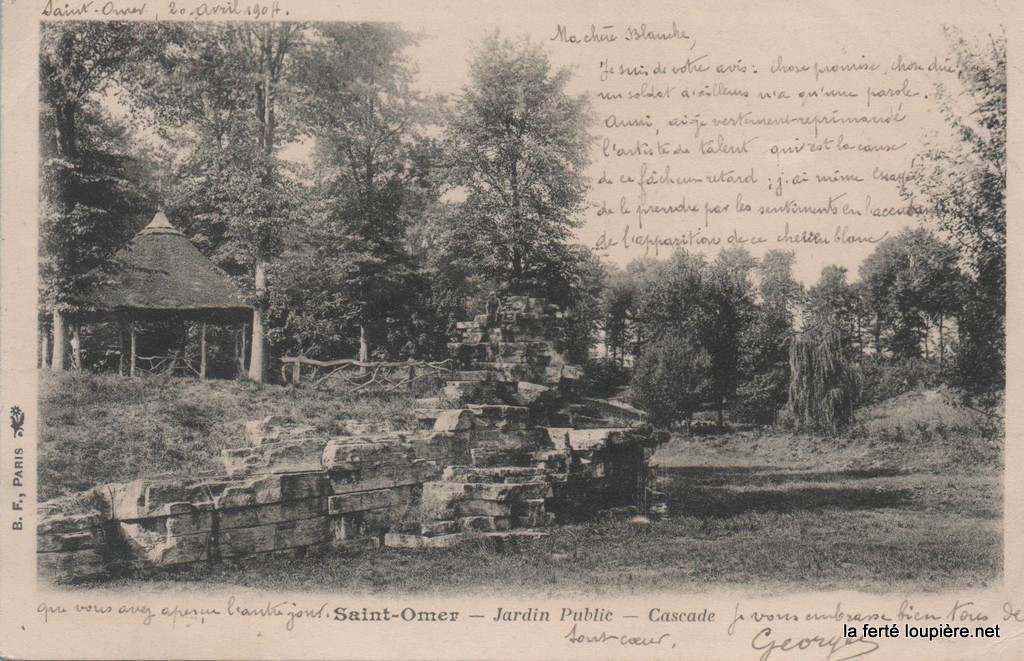 Saint-Omer, 20 avril 1904.
Ma chère Blanche,
Je suis de votre avis : chose promise, chose due
un soldat d'ailleurs n'a qu'une parole.
Aussi, ai-je vertement réprimandé
l'artiste de talent qui est la cause
de ce fâcheux retard ; j'ai même essayé
de le prendre par les sentiments en l'accusant
de l'apparition de ce cheveu blanc
que vous avez aperçu l'autre jour.
Je vous embrasse bien tous de
tout cœur,
Georges
Saint-Omer — Jardin Public — Cascade
B. F., PARIS
la ferté loupière.net